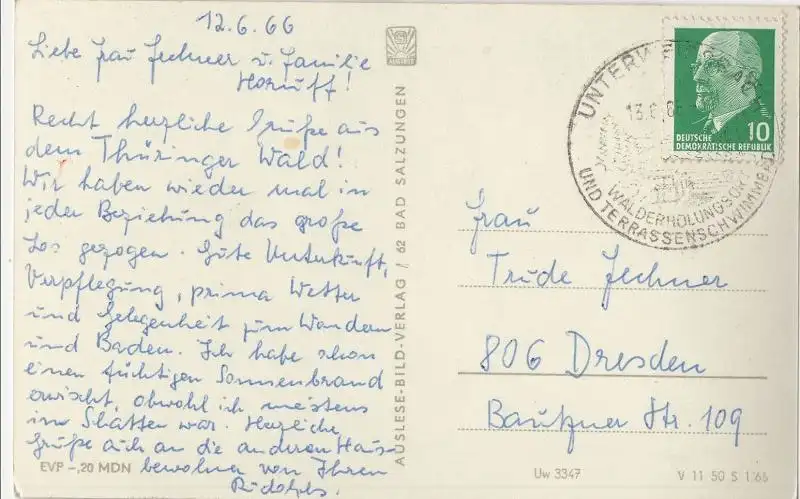 12.6.66
Liebe Frau Jechner u. Familie
Horuff!
Recht herzliche Grüße aus
dem Thüringer Wald!
Wir haben wieder mal in
jeder Beziehung das große
Los gezogen. Gute Unterkunft,
Verpflegung, prima Wetter
und Gelegenheit zum Wandern
und Baden. Ich habe schon
einen tüchtigen Sonnenbrand
erwischt, obwohl ich meistens
im Schatten war. Herzliche
Grüße auch an die anderen Haus-
bewohner von Ihren
Rudolphs.
EVP -,20 MDN
AUSLESE-BILD-VERLAG / 62 BAD SALZUNGEN
AUSLESE
UNTERW
13.6.66
WALDERHOLUNGSORT
UND TERRASSENSCHWIMMBAD
DEUTSCHE
DEMOKRATISCHE REPUBLIK
10
Frau
Trude Jechner
806 Dresden
Bautzner Str. 109
Uw 3347
V 11 50 S 1/66